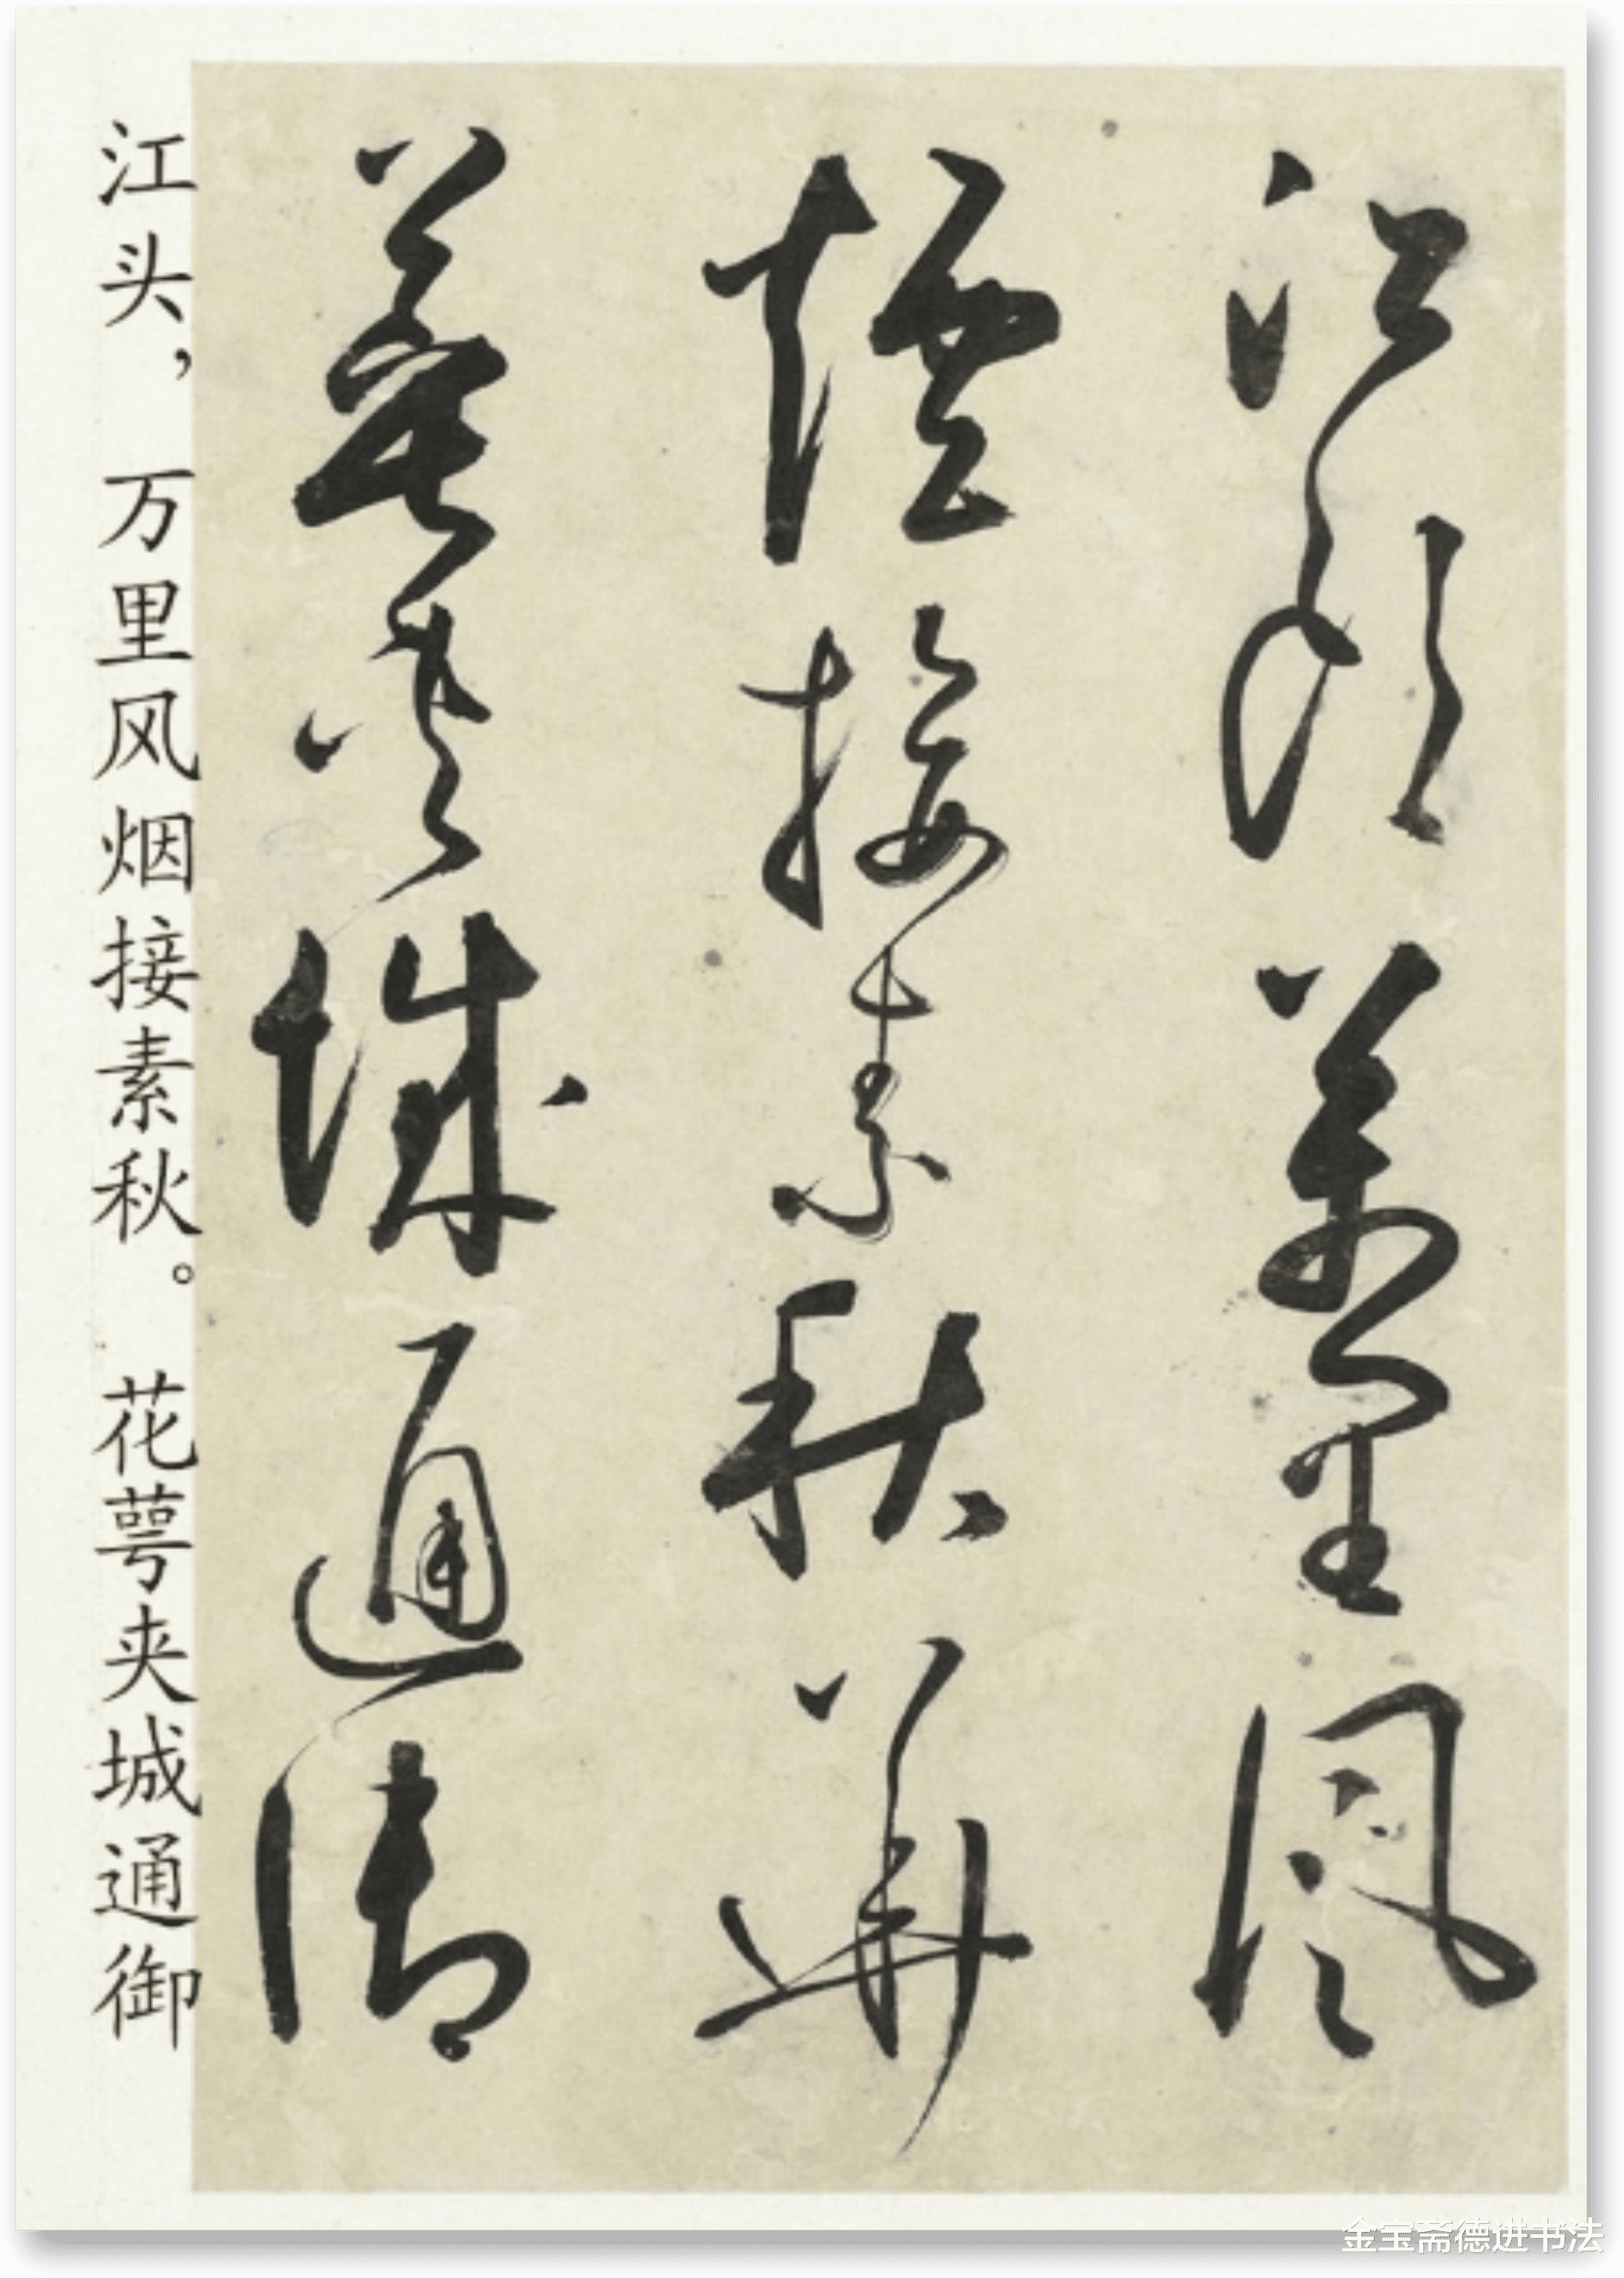 江頭萬里風
煙接素秋華
萼夾城通御
江头，万里风烟接素秋。花萼夹城通御
金宝斋德进书法